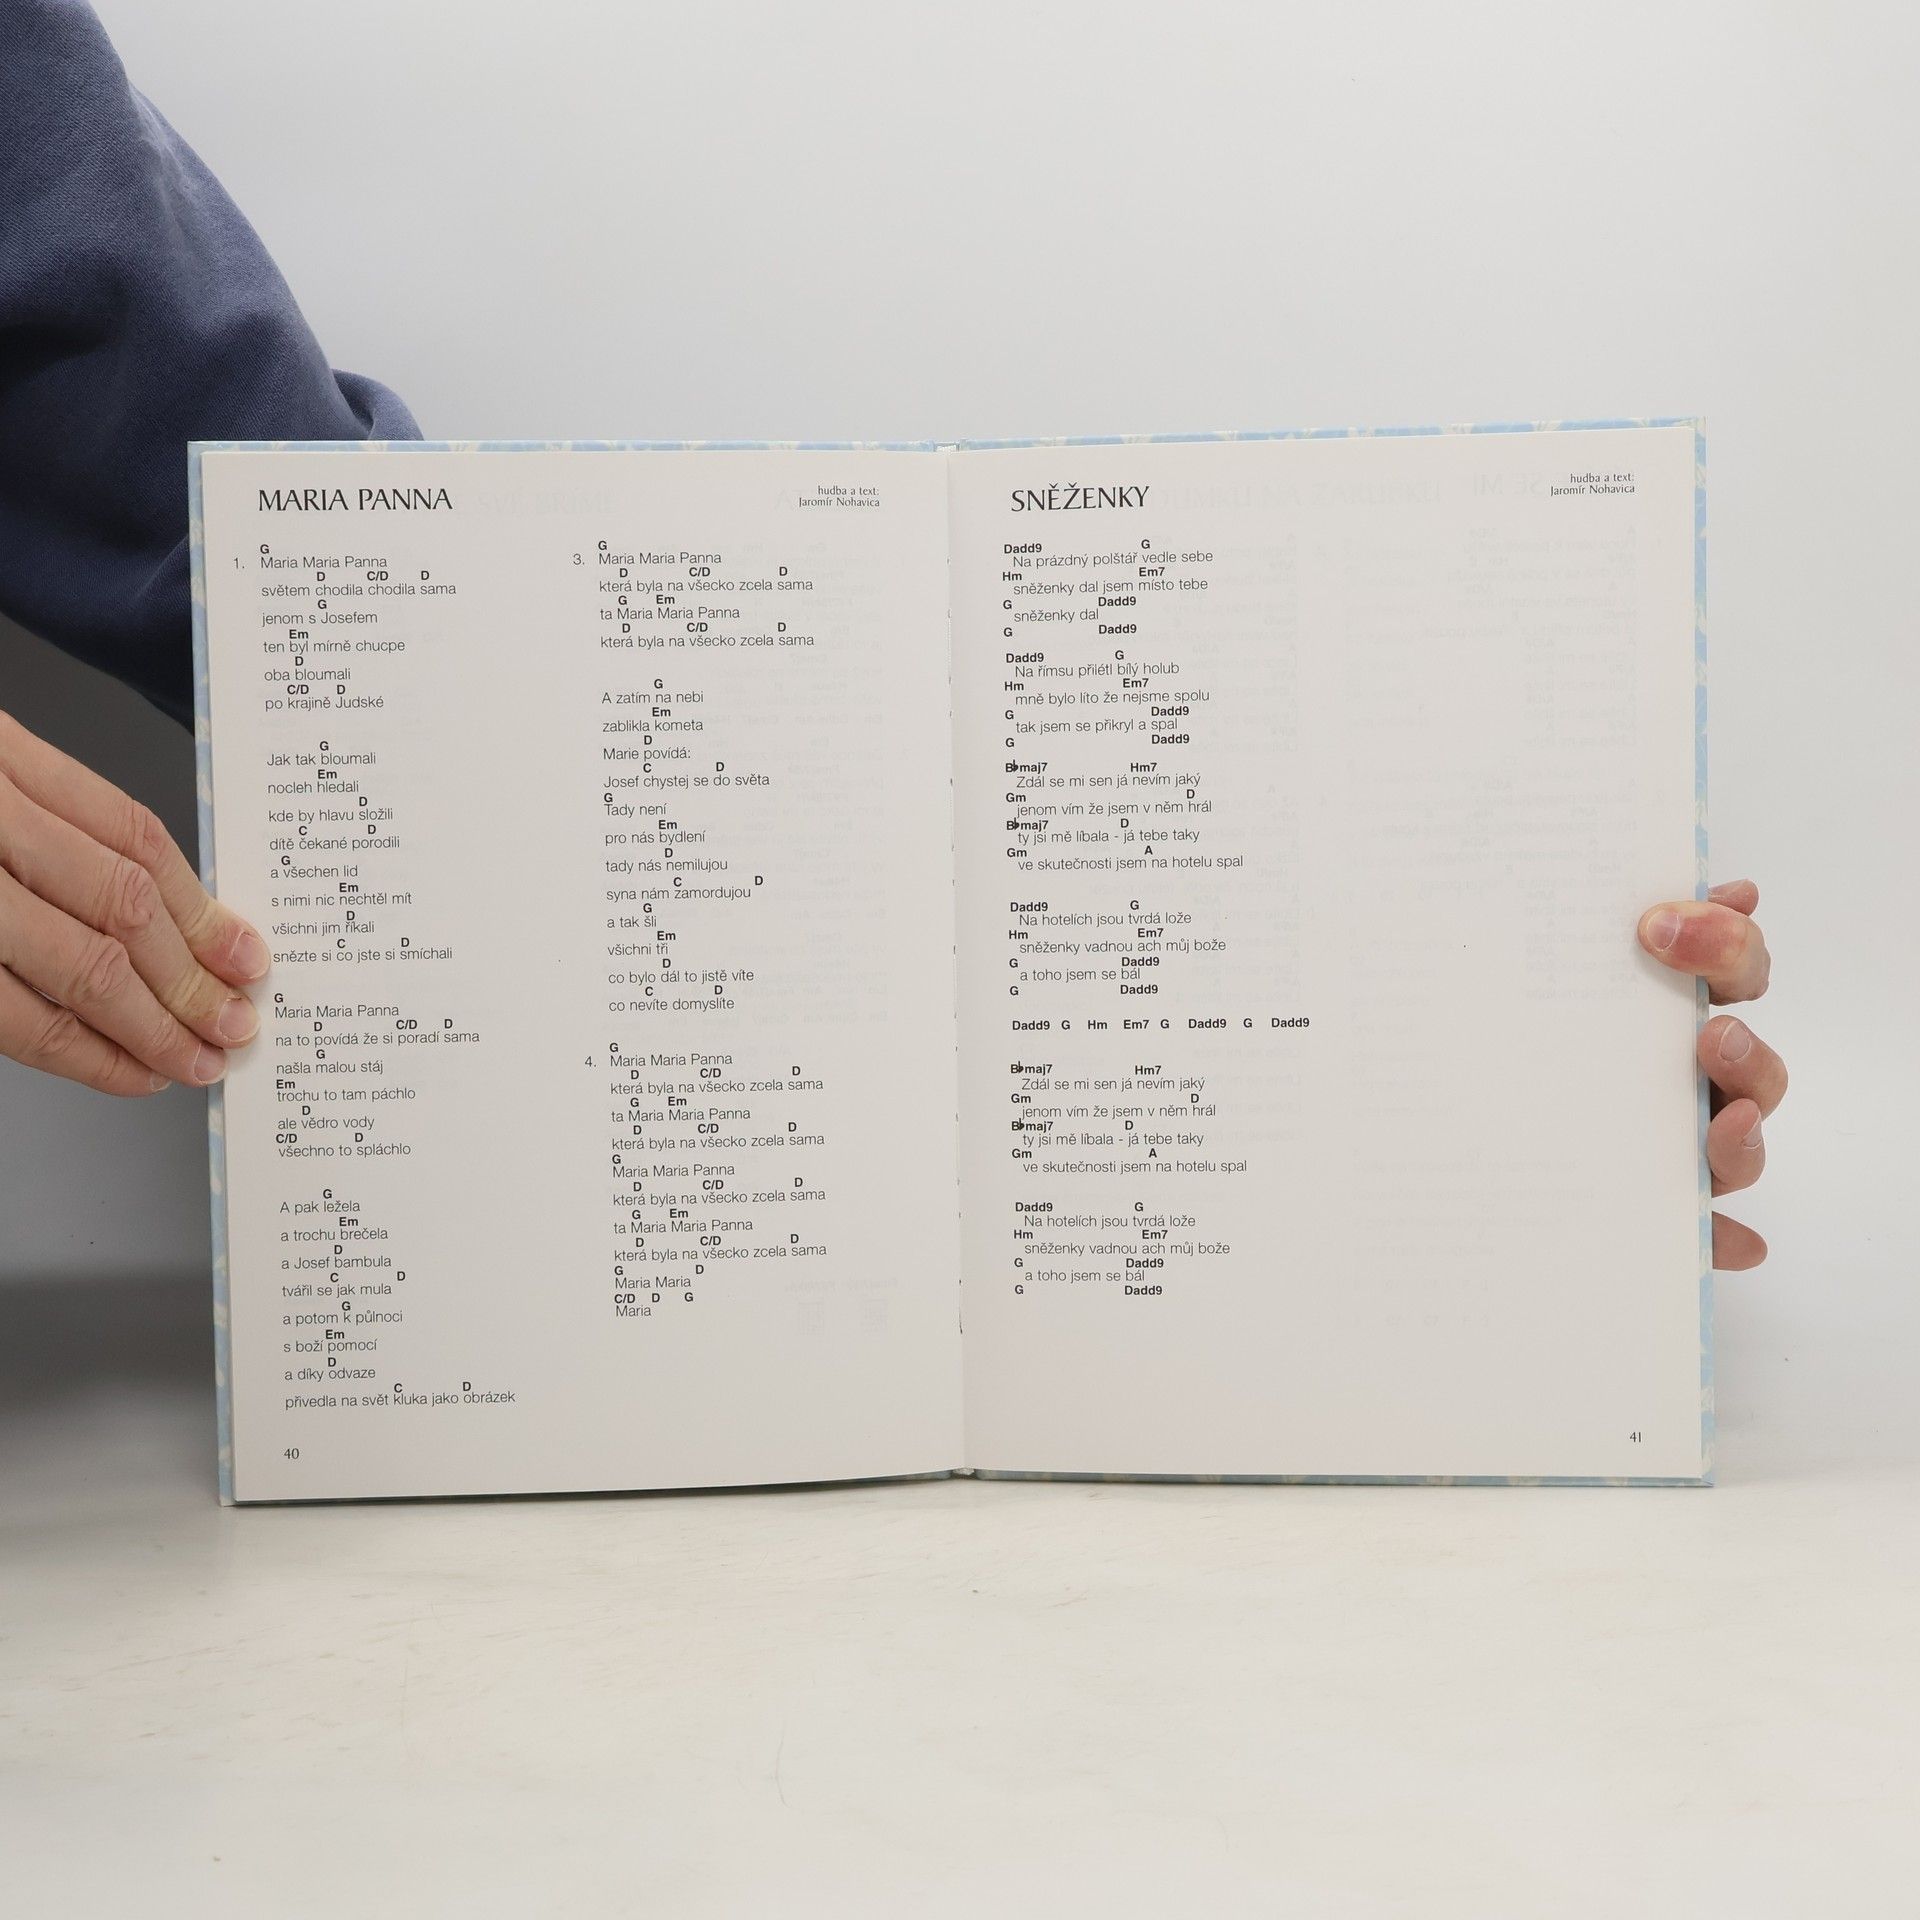 MARIA PANNA
hudba a text:
Jaromír Nohavica
G
1. Maria Maria Panna
D C/D D
světem chodila chodila sama
G
jenom s Josefem
Em
ten byl mírně chucpe
D
oba bloumali
C/D D
po krajině Judské
G
Jak tak bloumali
Em
nocleh hledali
D
kde by hlavu složili
C D
dítě čekané porodili
G
a všechen lid
Em
s nimi nic nechtěl mít
D
všichni jim říkali
C D
snězte si co jste si smíchali
G
Maria Maria Panna
D C/D D
na to povídá že si poradí sama
G
našla malou stáj
Em
trochu to tam páchlo
D
ale vědro vody
C/D D
všechno to spláchlo
G
A pak ležela
Em
a trochu brečela
D
a Josef bambula
C D
tvářil se jak mula
G
a potom k půlnoci
Em
s boží pomocí
D
a díky odvaze
C D
přivedla na svět kluka jako obrázek
40
G
3. Maria Maria Panna
D C/D D
která byla na všecko zcela sama
G Em
ta Maria Maria Panna
D C/D D
která byla na všecko zcela sama
G
A zatím na nebi
Em
zablikla kometa
D
Marie povídá:
C D
Josef chystej se do světa
G
Tady není
Em
pro nás bydlení
D
tady nás nemilujou
C D
syna nám zamordujou
G
a tak šli
Em
všichni tři
D
co bylo dál to jistě víte
C D
co nevíte domyslíte
G
4. Maria Maria Panna
D C/D D
která byla na všecko zcela sama
G Em
ta Maria Maria Panna
D C/D D
která byla na všecko zcela sama
G
Maria Maria Panna
D C/D D
která byla na všecko zcela sama
G Em
ta Maria Maria Panna
D C/D D
která byla na všecko zcela sama
G D
Maria Maria
C/D D G
Maria
SNĚŽENKY
hudba a text:
Jaromír Nohavica
Dadd9 G
Na prázdný polštář vedle sebe
Hm Em7
sněženky dal jsem místo tebe
G Dadd9
sněženky dal
G Dadd9
Dadd9 G
Na římsu přilétl bílý holub
Hm Em7
mně bylo líto že nejsme spolu
G Dadd9
tak jsem se přikryl a spal
G Dadd9
B♭maj7 Hm7
Zdál se mi sen já nevím jaký
Gm D
jenom vím že jsem v něm hrál
B♭maj7 D
ty jsi mě líbala - já tebe taky
Gm A
ve skutečnosti jsem na hotelu spal
Dadd9 G
Na hotelích jsou tvrdá lože
Hm Em7
sněženky vadnou ach můj bože
G Dadd9
a toho jsem se bál
G Dadd9
Dadd9 G Hm Em7 G Dadd9 G Dadd9
B♭maj7 Hm7
Zdál se mi sen já nevím jaký
Gm D
jenom vím že jsem v něm hrál
B♭maj7 D
ty jsi mě líbala - já tebe taky
Gm A
ve skutečnosti jsem na hotelu spal
Dadd9 G
Na hotelích jsou tvrdá lože
Hm Em7
sněženky vadnou ach můj bože
G Dadd9
a toho jsem se bál
G Dadd9
41